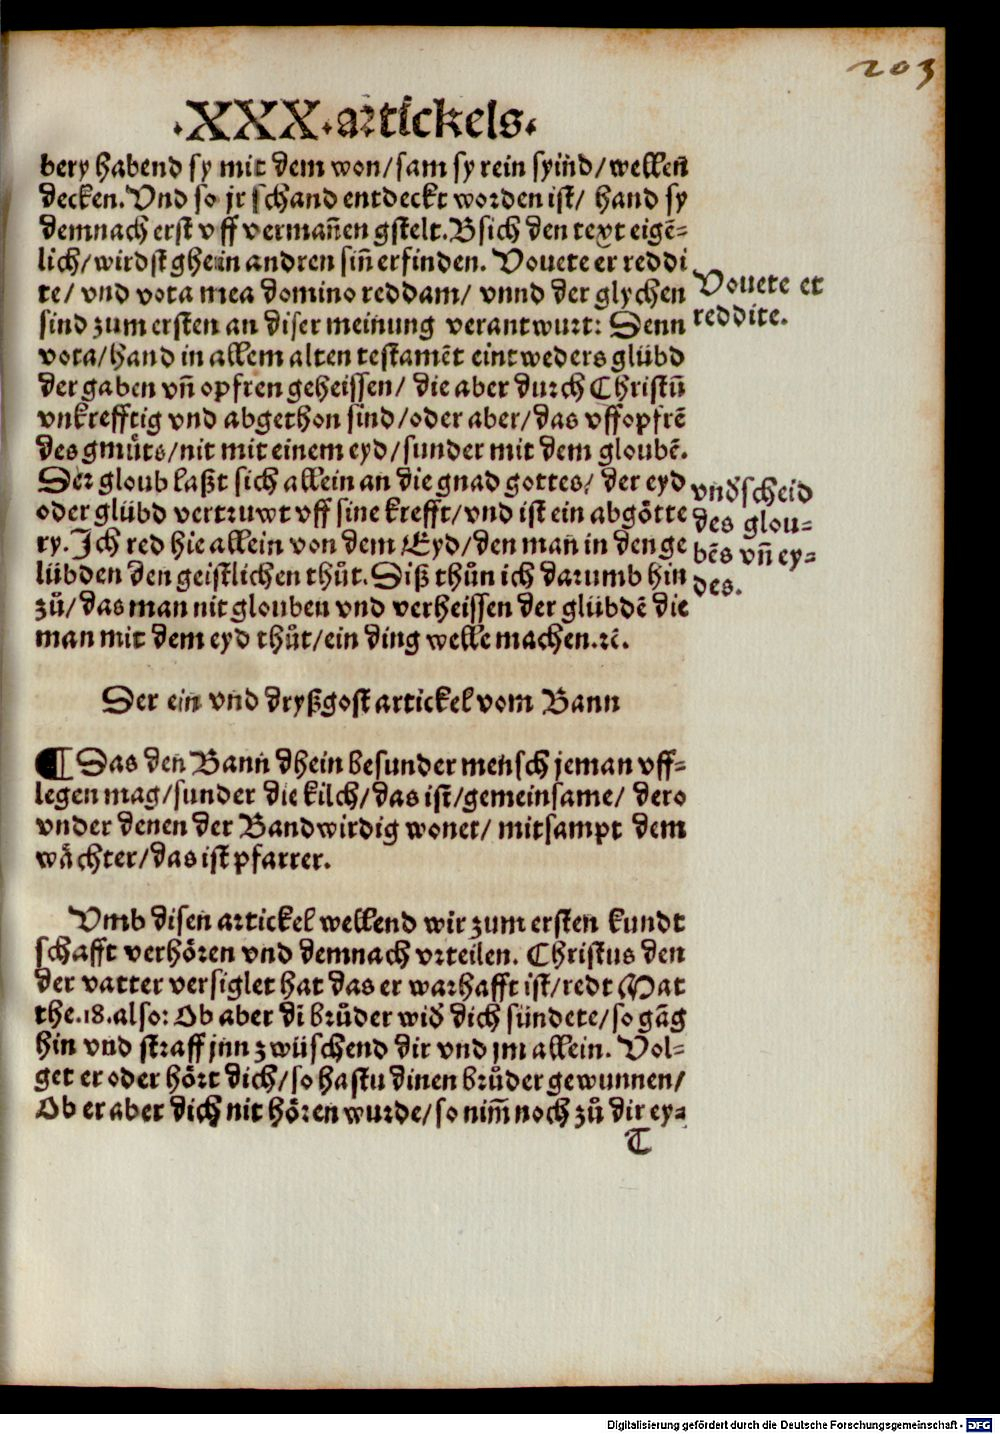 203
.XXX.artickels.
bery habend sy mit dem won/sam sy rein syind/wellen
decken. Vnd so jr schand entdeckt worden ist/ hand sy
demnach erst vff vermañen gstelt. Bsich den text eigē-
lich/wirdst ghein andren siñ erfinden. Vouete er reddi
te/ vnd vota mea domino reddam/ vnnd der glychen
sind zum ersten an diser meinung verantwurt: Denn
vota/hand in allem alten testamēt eintweders glübd
der gaben vñ opfren geheissen/ die aber durch Christū
vnkrefftig vnd abgethon sind/oder aber/das vffopfrē
des gmuͤts/nit mit einem eyd/sunder mit dem gloubē.
Der gloub laßt sich allein an die gnad gottes/ der eyd
oder glübd vertruwt vff sine krefft/vnd ist ein abgoͤtte
ry. Ich red hie allein von dem Eyd/den man in den ge
lübden den geistlichen thuͦt. Diß thuͦn ich darumb hin
zuͦ/das man nit glouben vnd verheissen der glübdē die
man mit dem eyd thuͦt/ein ding welle machen.ꝛc̄.
Vouete et
reddite.
vnd̄scheid
des glou-
bēs vñ ey-
des.
Der ein vnd dryßgost artickel vom Bann
¶ Das den Bann dhein besunder mensch jeman vff-
legen mag/sunder die kilch/das ist/gemeinsame/ dero
vnder denen der Bandwirdig wonet/ mitsampt dem
waͤchter/das ist pfarrer.
Vmb disen artickel wellend wir zum ersten kundt
schafft verhoͤren vnd demnach vrteilen. Christus den
der vatter versiglet hat das er warhafft ist/redt Mat
the.18.also: Ob aber dī bruͦder wid̄ dich sündete/so gāg
hin vnd straff jnn zwüschend dir vnd jm allein. Vol-
get er oder hoͤrt dich/so hastu dinen bruͦder gewunnen/
Ob er aber dich nit hoͤren wurde/so nim̄ noch zuͦ dir ey-
T
Digitalisierung gefördert durch die Deutsche Forschungsgemeinschaft - DFG